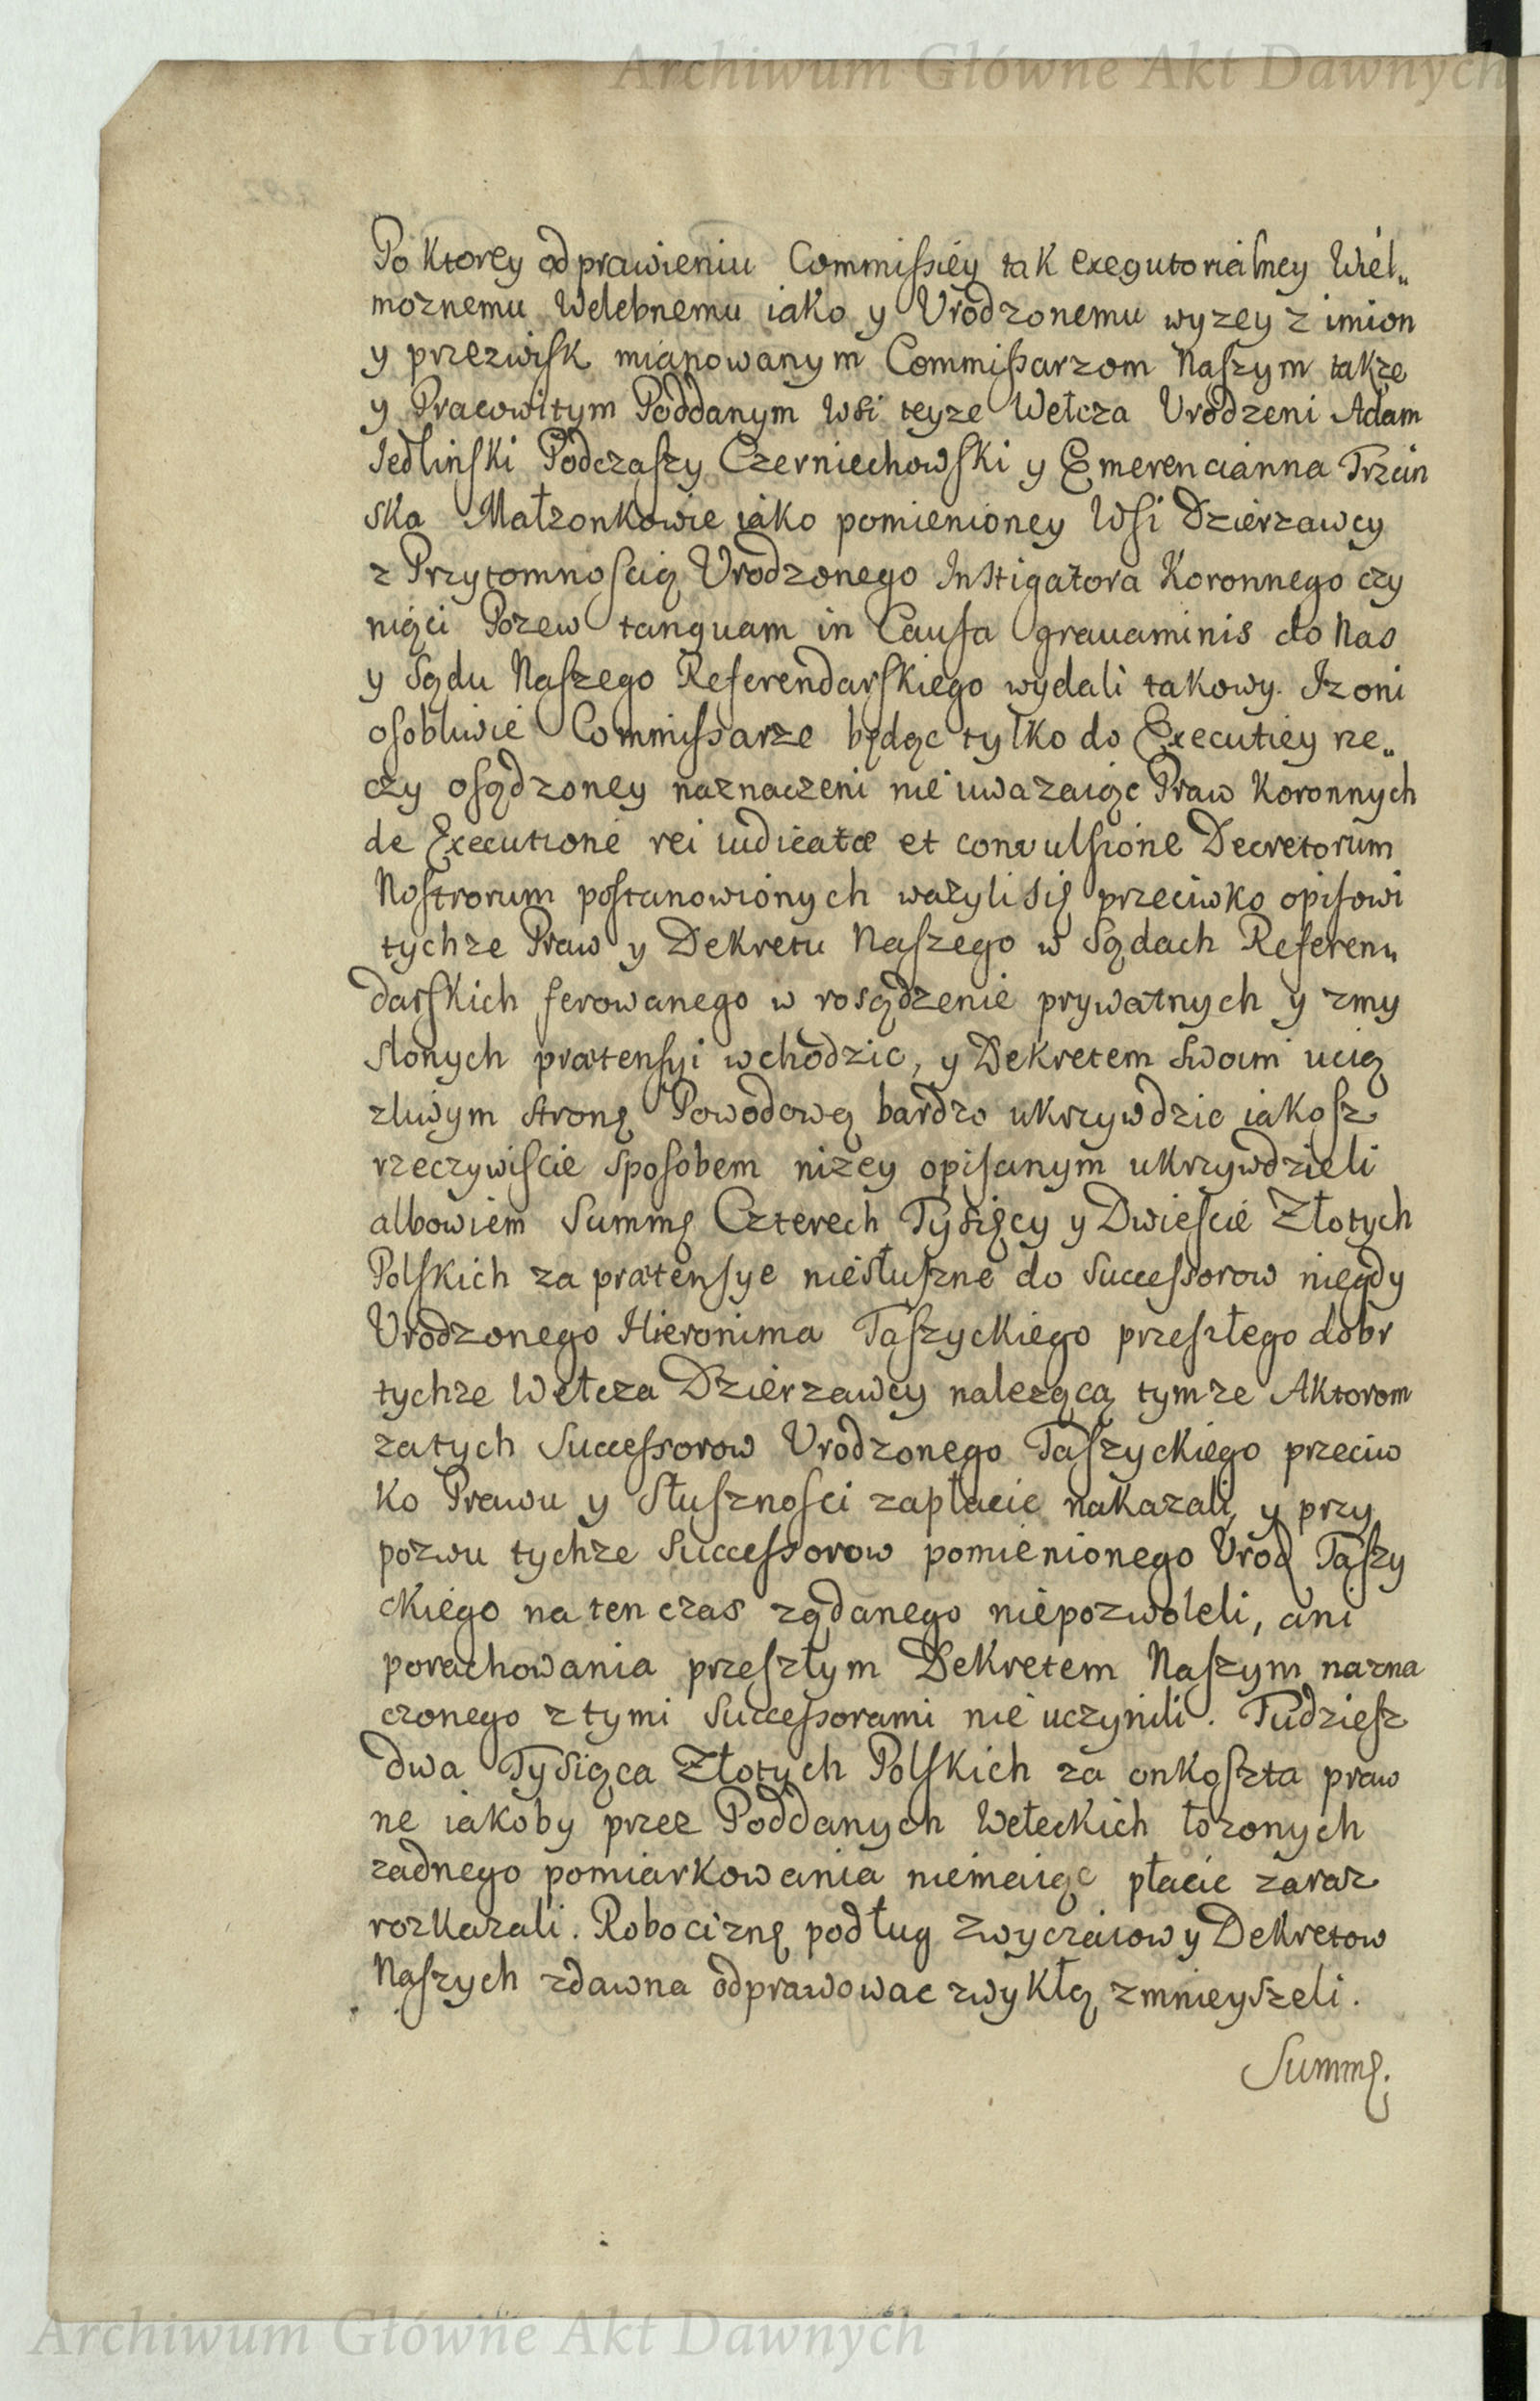 Archiwum Główne Akt Dawnych
Po Ktorey odprawieniu Commissiey tak exequtorialney Wiel„
moznemu Welebnemu iako y Vrodzonemu wyzey z imion
y przezwisk mianowanym Commissarzom Naszym takze
y Pracowitym Poddanym Wsi teyze Wełcza Vrodzeni Adam
Jedlinski Podczaszy Czerniechowski y Emerencianna Trzcin
ska Małzonkowie iako pomienioney Wsi Dzierzawcy
z Przytomnoscią Vrodzonego Instigatora Koronnego czy
niąci Pozew tanquam in Causa grauaminis do Nas
y Sądu Naszego Referendarskiego wydali takowy. Iz oni
osobliwie Commissarze będąc tylko do Executiey rze„
czy osądzoney naznaczeni nie uwazaiąc Praw Koronnych
de Executione rei iudicatæ et convulsione Decretorum
Nostrorum postanowionych wazyli się przeciwko opisowi
tychze Praw y Dekretu Naszego w Sądach Referen„
darskich ferowanego w rosądzenie prywatnych y zmy
slonych prætensyi wchodzic, y Dekretem Swoim ucią
zliwym stronę Powodową bardzo ukrzywdzic iakosz
rzeczywiscie sposobem nizey opisanym ukrzywdzieli
albowiem Summę Czterech Tysięcy y Dwiescie Złotych
Polskich za prætensye niesłuszne do Successorow niegdy
Vrodzonego Hieronima Taszyckiego przeszłego dobr
tychze Wełcza Dzierzawcy nalezącą tymze Aktorom
za tych Successorow Vrodzonego Taszyckiego przeciw
ko Prawu y Słusznosci zapłacic nakazali, y przy
pozwu tychze Successorow pomienionego Vrod Taszy
ckiego na ten czas ządanego niepozwoleli, ani
porachowania przeszłym Dekretem Naszym nazna
czonego z tymi Successorami nie uczynili. Tudziesz
dwa Tysiąca Złotych Polskich za onkoszta praw
ne iakoby przez Poddanych Wełeckich łozonych
zadnego pomiarkowania niemaiąc płacic zaraz
rozkazali. Robociznę podług zwyczaiow y Dekretow
Naszych zdawna odprawowac zwykłą zmnieyszeli.
Summę.
Archiwum Główne Akt Dawnych